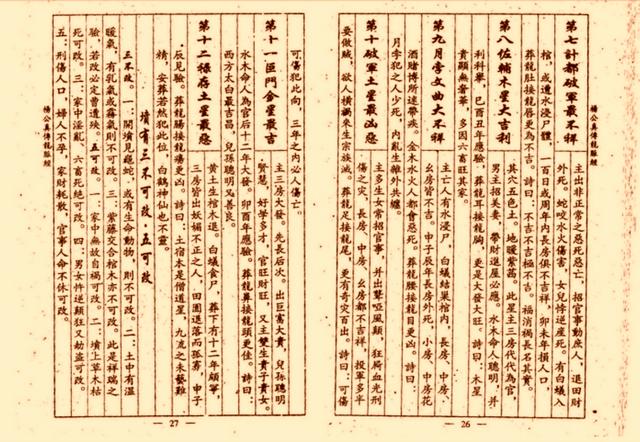 第七計都破軍最不祥
主出非正常之惡死惡亡，招官事動庶人，退田財
外死。蛇咬水火傷害，女兒悖逆産死。有白蟻入
棺，或遭水浸尸體，一百日或周年内長房俱不吉祥，卯未年損人口
葬龍肚接龍唇更爲不吉。詩曰：不吉不吉極不吉。福消禍長名其實。
第八佐輔木星大吉利
其穴五色土。地暖紫茜。此星主三房代代為官
男主招美妻，帶財進屋必應。水木命人聰明，并
利科舉，巳酉丑年應驗。葬龍耳接龍胸，更是大發大旺。詩曰：木星
貴顯無奢華，多因六畜旺其家。
第九月孛文曲大不祥
主亡人有水浸尸，白蟻結巢棺内，長房、中房、
幺房皆不吉。申子辰年長房外死，小房、中房花
酒賭博所迷帶來。金木水火人都會惡死。葬龍腰接龍目更凶。詩曰：
月孛犯之人少死，内亂生離外共纏。
第十破軍土星最凶惡
主多生女常招官事，并出聾啞風顛，狂蕩血光刑
傷之灾，長房、中房、幺房都不吉祥，投軍多半
要做賊，欲人橫禍來生宗族滅。葬龍足接龍尾，更有奇灾百出。詩曰：可傷
楊公真傳龍脈經
— 26 —
可傷犯此向，三年之内必人傷亡。
第十一巨門金星最吉
主三房大發。先長后次。出巨富大貴，兒孫聰明
賢慧，好學多才，官旺財旺，又主雙生貴子貴女。
水木命人為官后十二年大發。卯酉年應驗。葬龍鼻接龍頭更佳。詩曰：
西方太白最吉昌。兒孫聰明又善良。
第十二祿存土星最惡
黄土生棺木退。白蟻食尸，葬下有十二年顛寒
三房皆出妖媚不正之人，田園退落而孤寡，申子
辰見驗。葬龍腸接龍瘍更凶。詩曰：土宿本是僧道星，九流之未藝難
精。安葬若然犯此位，白鶴神仙也不靈。
墳有三不可改·五可改
三不改。一：開墳見龜蛇，或有生動物，則不可改。二：土中有温
暖氣，有乳氣或霧氣則不可改。三：紫藤交合棺木亦不可改。此是祥瑞之
驗，若改必定曹遺殃。五可改。一：家中無故自禍可改。二：墳上草木枯
死可改。三：家中淫亂，六畜死絶可改。四：男女忤逆顛狂又劫盗可改。
五：刑傷人口，婦人不孕，家財耗散，官事人命不休可改。
— 27 —